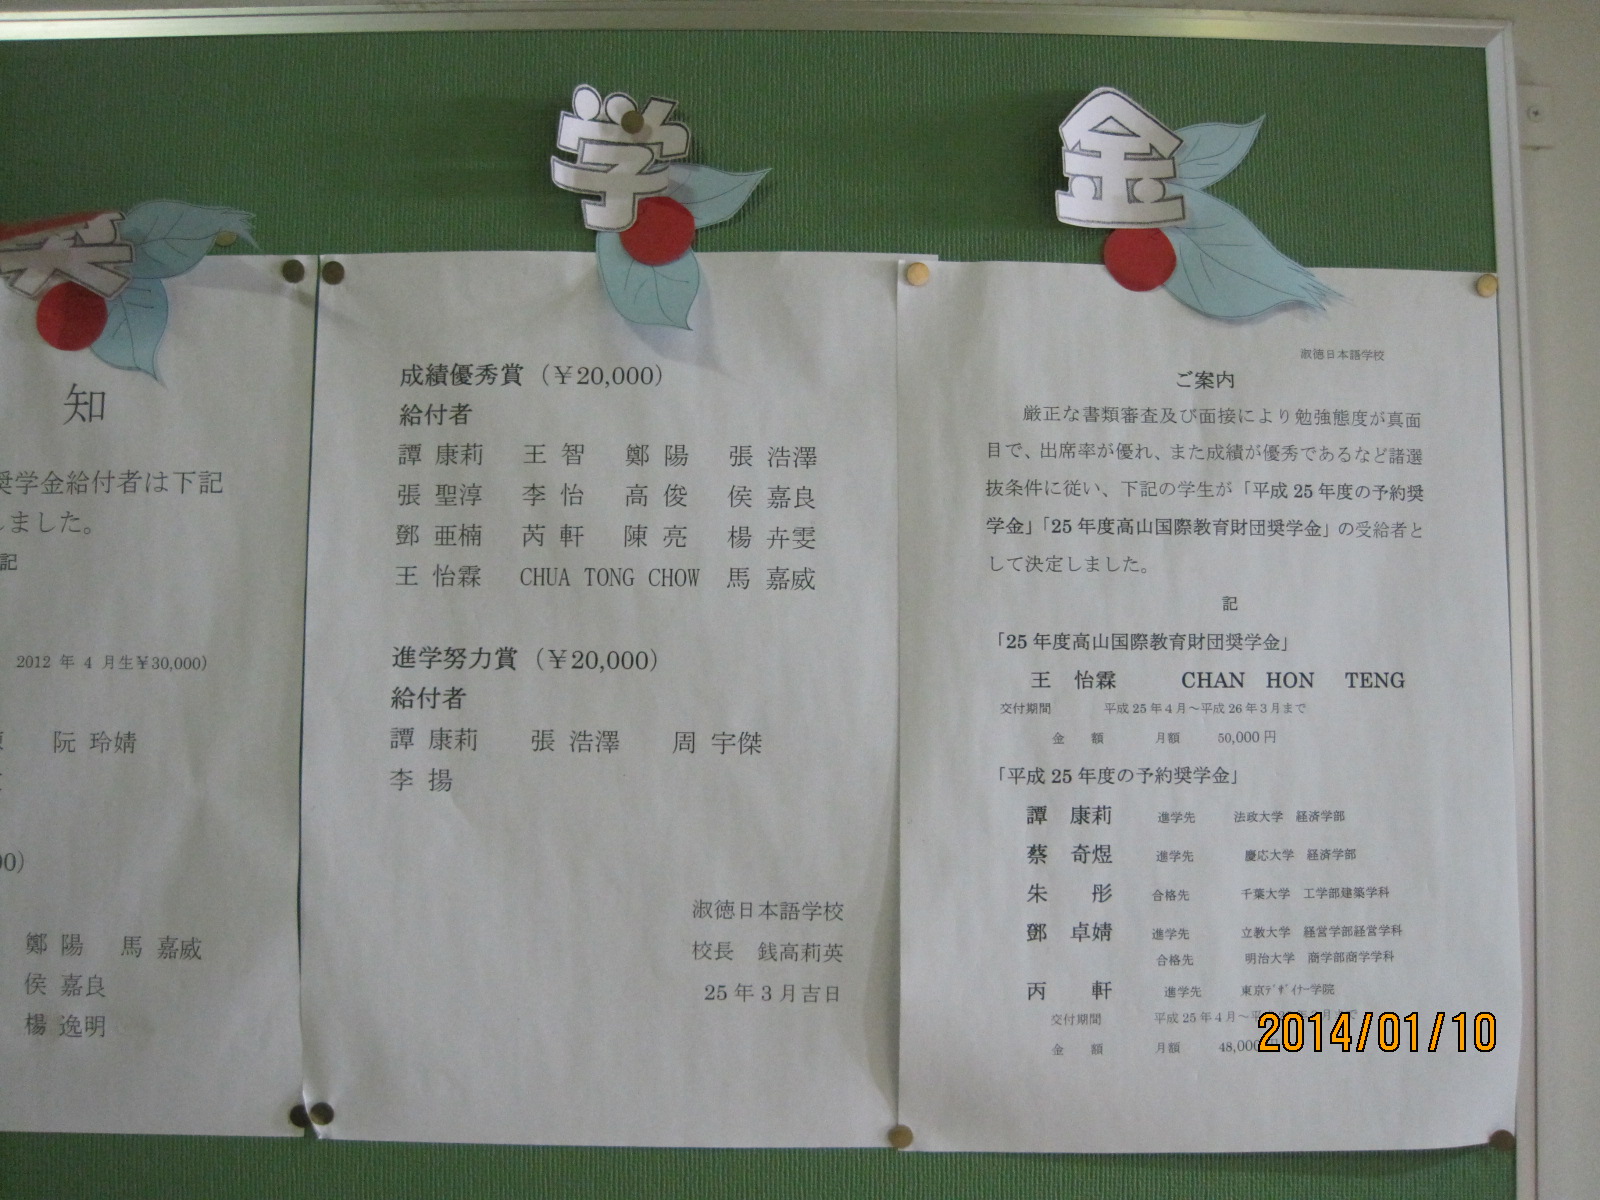 学
金
知
奨学金給付者は下記
しました。
記
2012 年 4 月生￥30,000)
阮 玲婧
00)
鄭 陽 馬 嘉威
侯 嘉良
楊 逸明
成績優秀賞（￥20,000）
給付者
譚 康莉 王 智 鄭 陽 張 浩澤
張 聖淳 李 怡 高 俊 侯 嘉良
鄧 亜楠 芮 軒 陳 亮 楊 卉雯
王 怡霖 CHUA TONG CHOW 馬 嘉威
進学努力賞（￥20,000）
給付者
譚 康莉 張 浩澤 周 宇傑
李 揚
淑徳日本語学校
校長 銭高莉英
25 年 3 月吉日
淑徳日本語学校
ご案内
厳正な書類審査及び面接により勉強態度が真面
目で、出席率が優れ、また成績が優秀であるなど諸選
抜条件に従い、下記の学生が「平成 25 年度の予約奨
学金」「25 年度高山国際教育財団奨学金」の受給者と
して決定しました。
記
「25 年度高山国際教育財団奨学金」
王 怡霖 CHAN HON TENG
交付期間 平成 25 年 4 月～平成 26 年 3 月まで
金 額 月額 50,000 円
「平成 25 年度の予約奨学金」
譚 康莉 進学先 法政大学 経済学部
蔡 奇煜 進学先 慶応大学 経済学部
朱 彤 合格先 千葉大学 工学部建築学科
鄧 卓婧 進学先 立教大学 経営学部経営学科
合格先 明治大学 商学部商学学科
丙 軒 進学先 東京ﾃﾞｻﾞｲﾅｰ学院
交付期間 平成 25 年 4 月～平
金 額 月額 48,000
2014/01/10